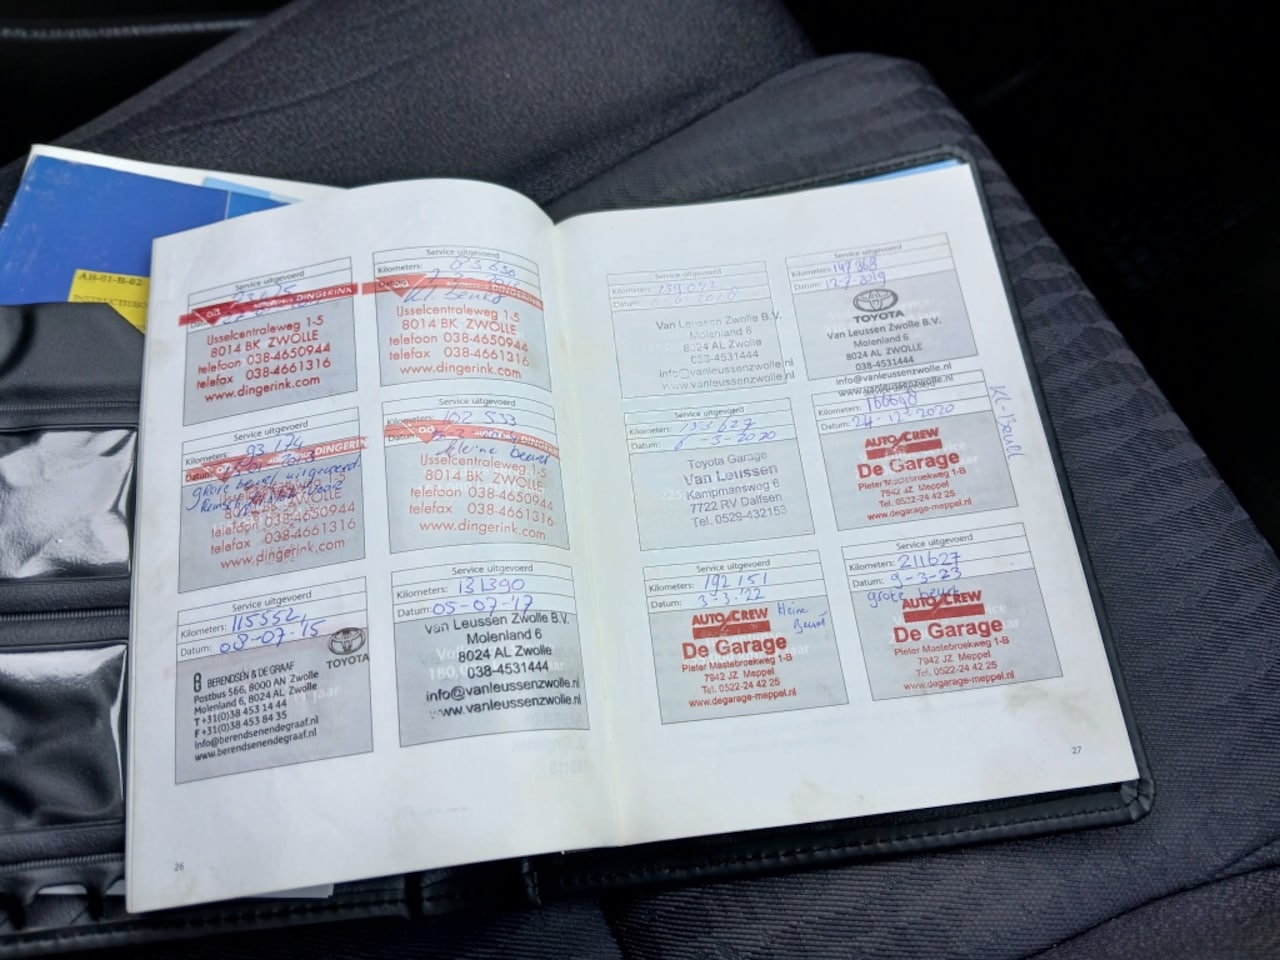 AB-01-B-02
Service uitgevoerd
AUTOBEDRIJF DINGERINK
IJsselcentraleweg 1-5
8014 BK ZWOLLE
telefoon 038-4650944
telefax 038-4661316
www.dingerink.com
Service uitgevoerd
Kilometers:
kl. beurt
DINGERINK
IJsselcentraleweg 1-5
8014 BK ZWOLLE
telefoon 038-4650944
telefax 038-4661316
www.dingerink.com
Service uitgevoerd
Kilometers: 93 174
Datum:
DINGERINK
grote beurt uitgevoerd
IJsselcentraleweg 1-5
8014 BK ZWOLLE
telefoon 038-4650944
telefax 038-4661316
www.dingerink.com
Service uitgevoerd
Kilometers: 102 533
Datum:
DINGERINK
kleine beurt
IJsselcentraleweg 1-5
8014 BK ZWOLLE
telefoon 038-4650944
telefax 038-4661316
www.dingerink.com
Service uitgevoerd
Kilometers: 115552
Datum: 08-07-'15
TOYOTA
BERENDSEN & DE GRAAF
Postbus 566, 8000 AN Zwolle
Molenland 6, 8024 AL Zwolle
T +31(0)38 453 14 44
F +31(0)38 453 84 35
info@berendsenendegraaf.nl
www.berendsenendegraaf.nl
Service uitgevoerd
Kilometers: 131390
Datum: 05-07-'17
Van Leussen Zwolle B.V.
Molenland 6
8024 AL Zwolle
038-4531444
info@vanleussenzwolle.nl
www.vanleussenzwolle.nl
26
Service uitgevoerd
Kilometers: 139092
Datum:
Van Leussen Zwolle B.V.
Molenland 6
8024 AL Zwolle
038-4531444
info@vanleussenzwolle.nl
www.vanleussenzwolle.nl
Service uitgevoerd
Kilometers: 147868
Datum: 12-7-2019
TOYOTA
Van Leussen Zwolle B.V.
Molenland 6
8024 AL ZWOLLE
038-4531444
info@vanleussenzwolle.nl
www.vanleussenzwolle.nl
Service uitgevoerd
Kilometers: 153627
Datum: 6-3-2020
Toyota Garage
Van Leussen
Kampmansweg 6
7722 RV Dalfsen
Tel. 0529-432153
Service uitgevoerd
Kilometers: 166690
Datum: 24-12-2020
Kl-Beurt
AUTO CREW
De Garage
Pieter Mastebroekweg 1-B
7942 JZ Meppel
Tel. 0522-24 42 25
www.degarage-meppel.nl
Service uitgevoerd
Kilometers: 192 151
Datum: 3-3-'22
Kleine Beurt
AUTO CREW
De Garage
Pieter Mastebroekweg 1-B
7942 JZ Meppel
Tel. 0522-24 42 25
www.degarage-meppel.nl
Service uitgevoerd
Kilometers: 211627
Datum: 9-3-23
grote beurt
AUTO CREW
De Garage
Pieter Mastebroekweg 1-B
7942 JZ Meppel
Tel. 0522-24 42 25
www.degarage-meppel.nl
27